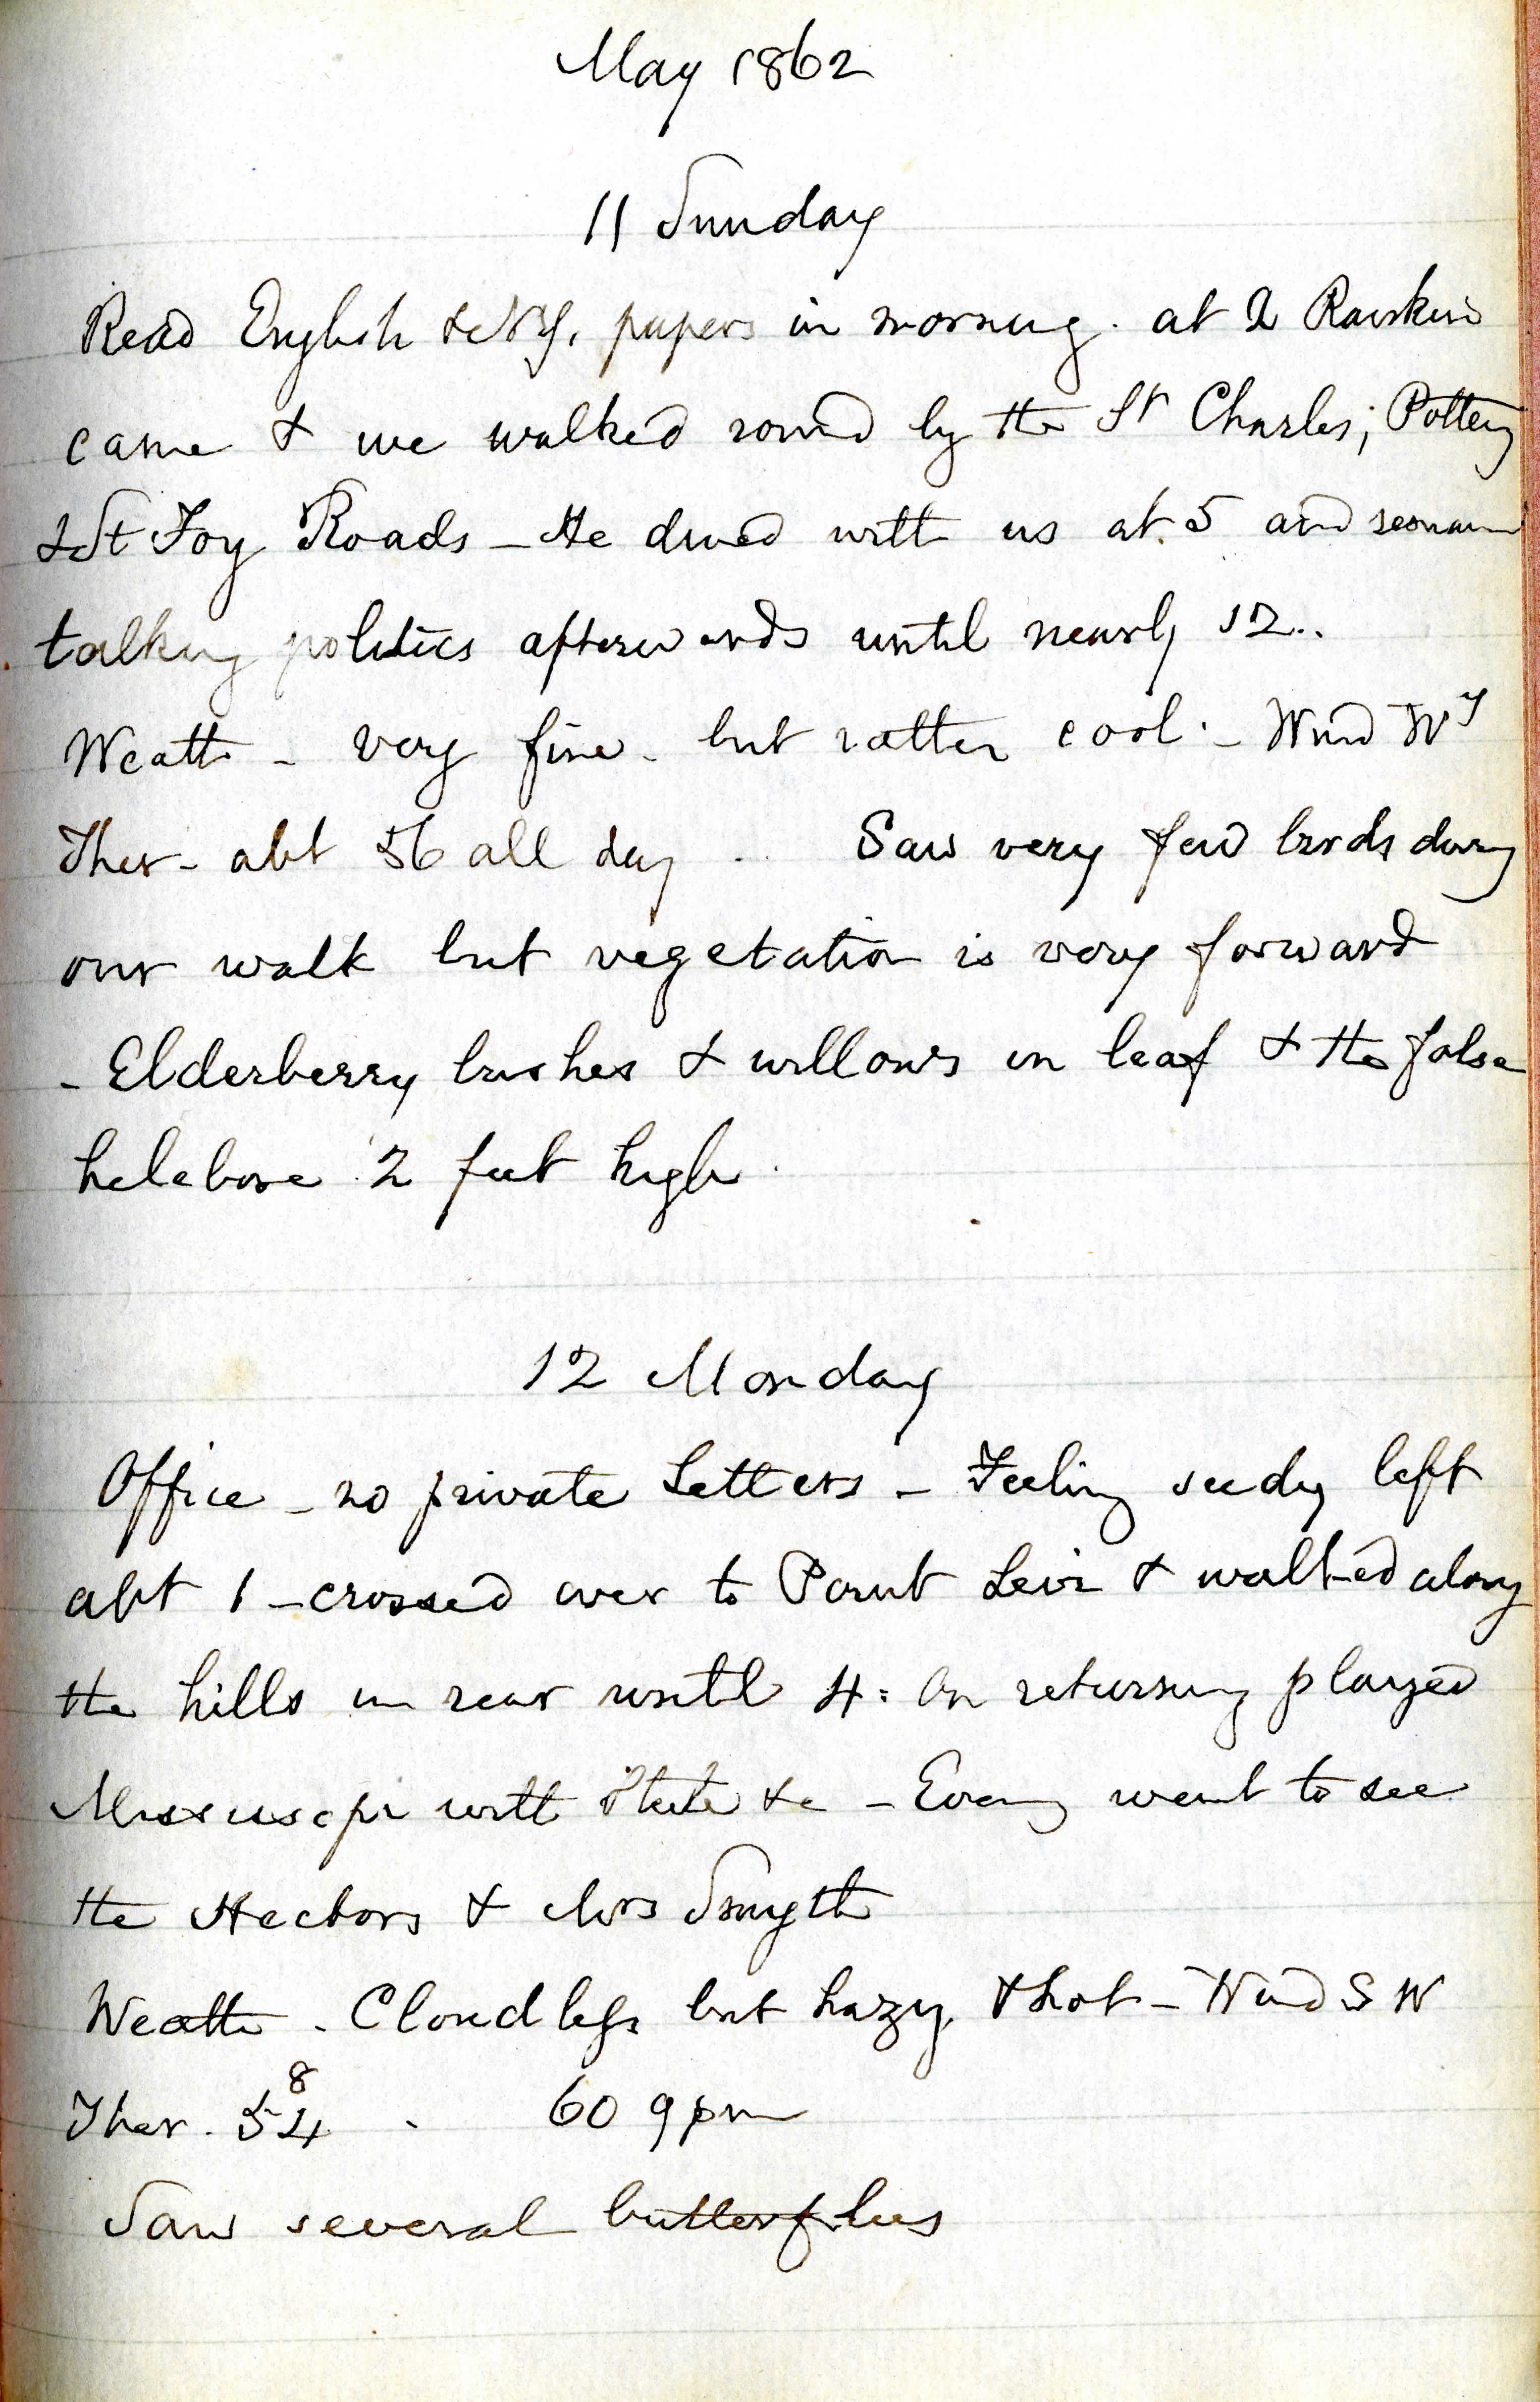 May 1862
11 Sunday
Read English & N.Y. papers in morning. at 2 Rankin
came & we walked round by the St Charles, Pottery
& St Foy Roads – He dined with us at 5 and remain
talking politics afterwards until nearly 12..
Weath – very fine – but rather cool – Wind Wy
Ther – abt 56 all day . Saw very few birds during
our walk but vegetation is very forward
– Elderberry bushes & willows in leaf & the false
helebore 2 feet high.
12 Monday
Office – no private Letters – Feeling seedy left
abt 1 – crossed over to Point Levi & walked along
the hills in rear until 4: On returning played
with &c – Evening went to see
the Hectors & Mrs Smyth
Weath – Cloudless but hazy, & hot – Wind S W
Ther. 54 8 . 60 9 pm
Saw several butterflies